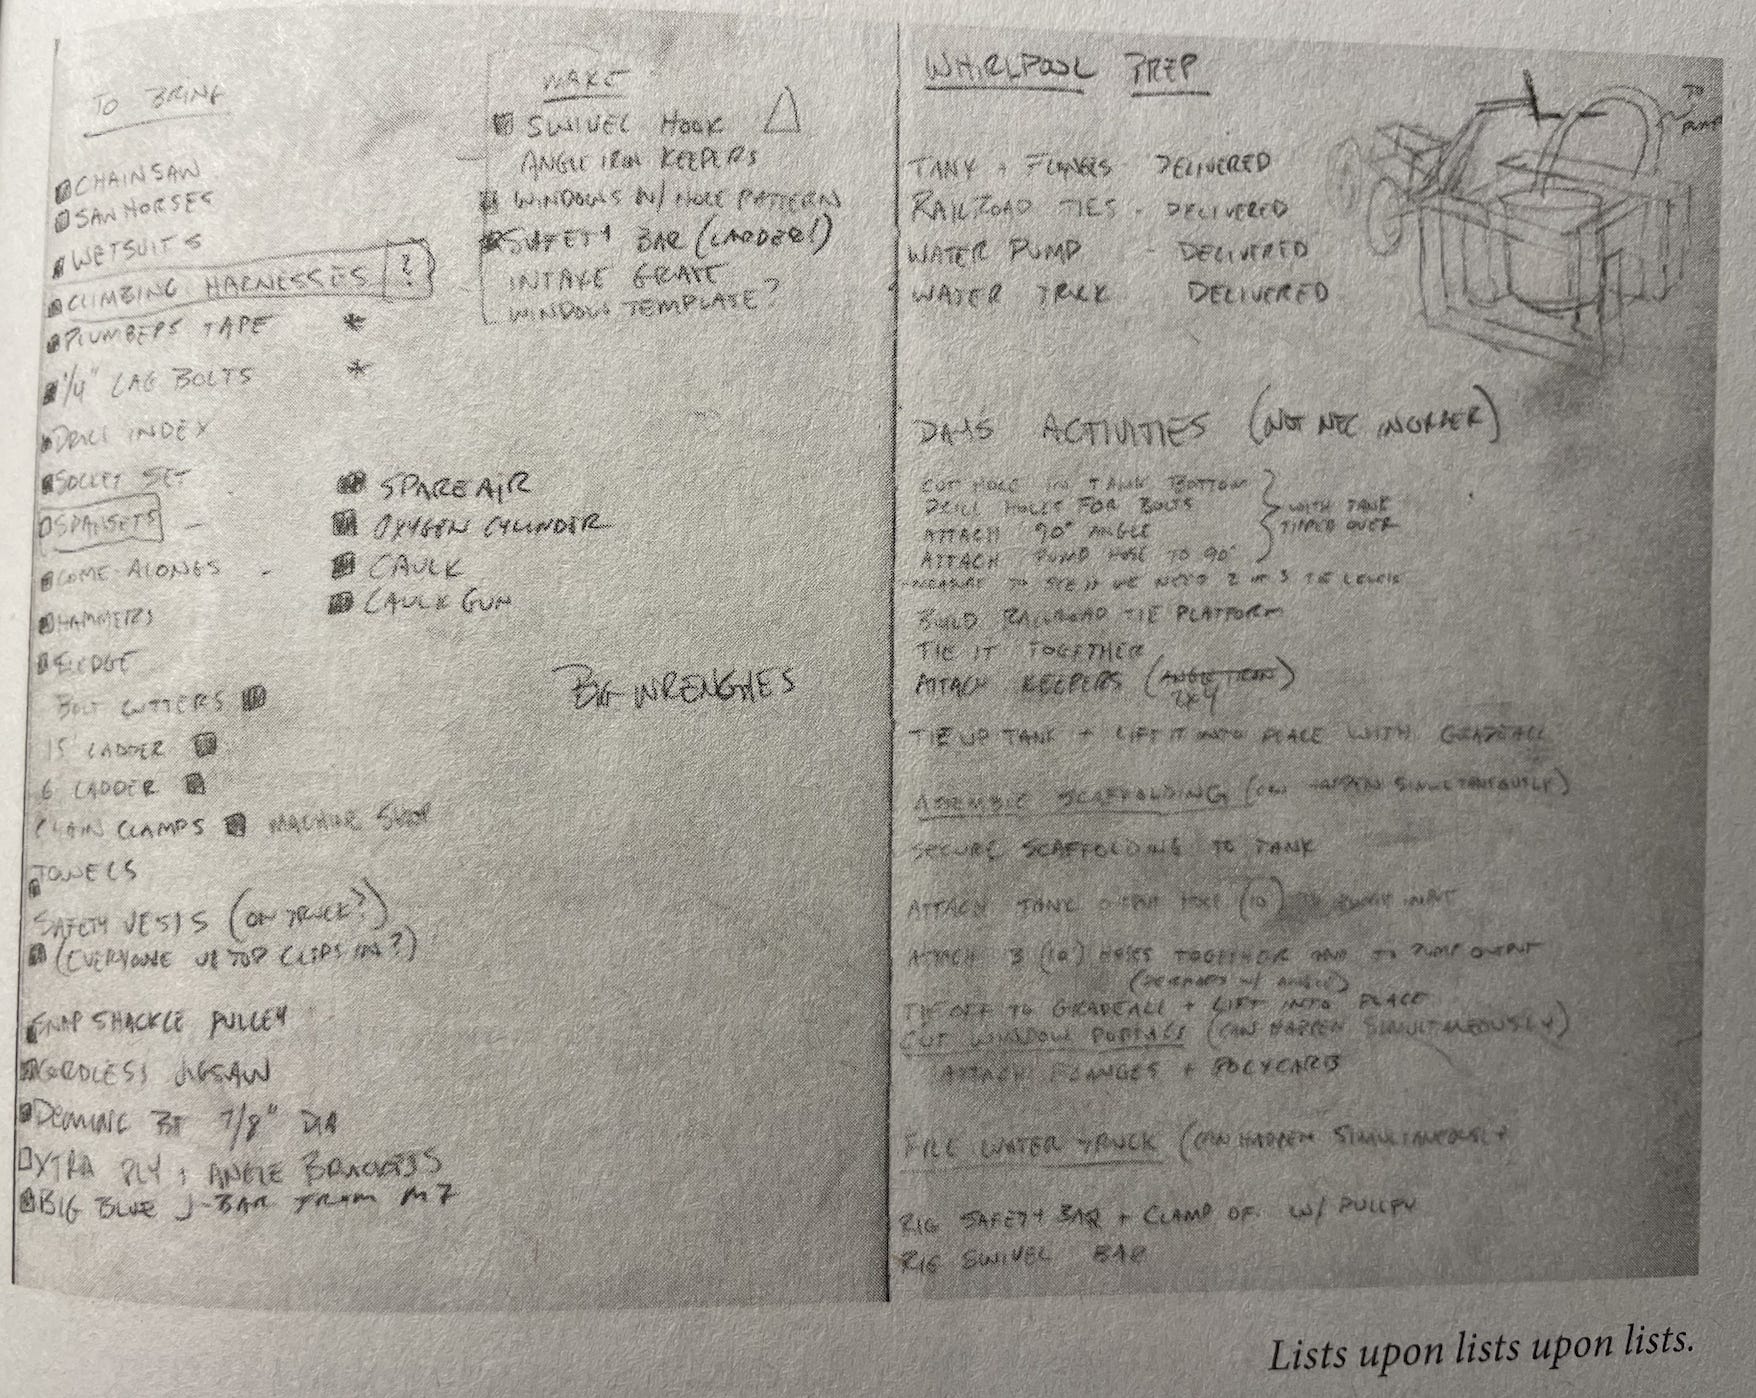 TO BRING
CHAINSAW
SAWHORSES
WETSUITS
CLIMBING HARNESSES ?
PLUMBERS TAPE *
1/4" LAG BOLTS *
DRILL INDEX
SOCKET SET
SPANSETS
COME-ALONGS
HAMMERS
SLEDGE
BOLT CUTTERS
15' LADDER
6 LADDER
CHAIN CLAMPS MACHINE SHOP
TOWELS
SAFETY VESTS (ON TRUCK?)
(EVERYONE UP TOP CLIPS IN?)
SNAP SHACKLE PULLEY
CORDLESS JIGSAW
7/8" DIA
XTRA PLY + ANGLE BRACKETS
BIG BLUE J-BAR FROM M7
MAKE
SWIVEL HOOK
ANGLE IRON KEEPERS
WINDOWS W/ HOLE PATTERN
SAFETY BAR (LADDER!)
INTAKE GRATE
WINDOW TEMPLATE?
SPARE AIR
OXYGEN CYLINDER
CAULK
CAULK GUN
BIG WRENCHES
WHIRLPOOL PREP
TANK + FLANGES DELIVERED
RAILROAD TIES - DELIVERED
WATER PUMP - DELIVERED
WATER TRUCK DELIVERED
TO
PUMP
DAYS ACTIVITIES (NOT NEC IN ORDER)
CUT HOLE IN TANK BOTTOM
DRILL HOLES FOR BOLTS
ATTACH 90° ANGLE
ATTACH PUMP HOSE TO 90°
WITH TANK
TIPPED OVER
MEASURE TO SEE IF WE NEED 2 OR 3 TIE LEVELS
BUILD RAILROAD TIE PLATFORM
TIE IT TOGETHER
ATTACH KEEPERS (ANGLE IRON)
2x4
TIE UP TANK + LIFT IT INTO PLACE WITH GRADEALL
ASSEMBLE SCAFFOLDING (CAN HAPPEN SIMULTANEOUSLY)
SECURE SCAFFOLDING TO TANK
ATTACH TANK OUTPUT HOSE (10') TO PUMP INPUT
ATTACH 3 (10') HOSES TOGETHER AND TO PUMP OUTPUT
(PERHAPS W/ ANGLE)
TIE OFF TO GRADEALL + LIFT INTO PLACE
CUT WINDOW PORTALS (CAN HAPPEN SIMULTANEOUSLY)
ATTACH FLANGES + POLYCARB
FILL WATER TRUCK (CAN HAPPEN SIMULTANEOUSLY
RIG SAFETY BAR + CLAMP OF. W/ PULLEY
RIG SWIVEL BAR
Lists upon lists upon lists.